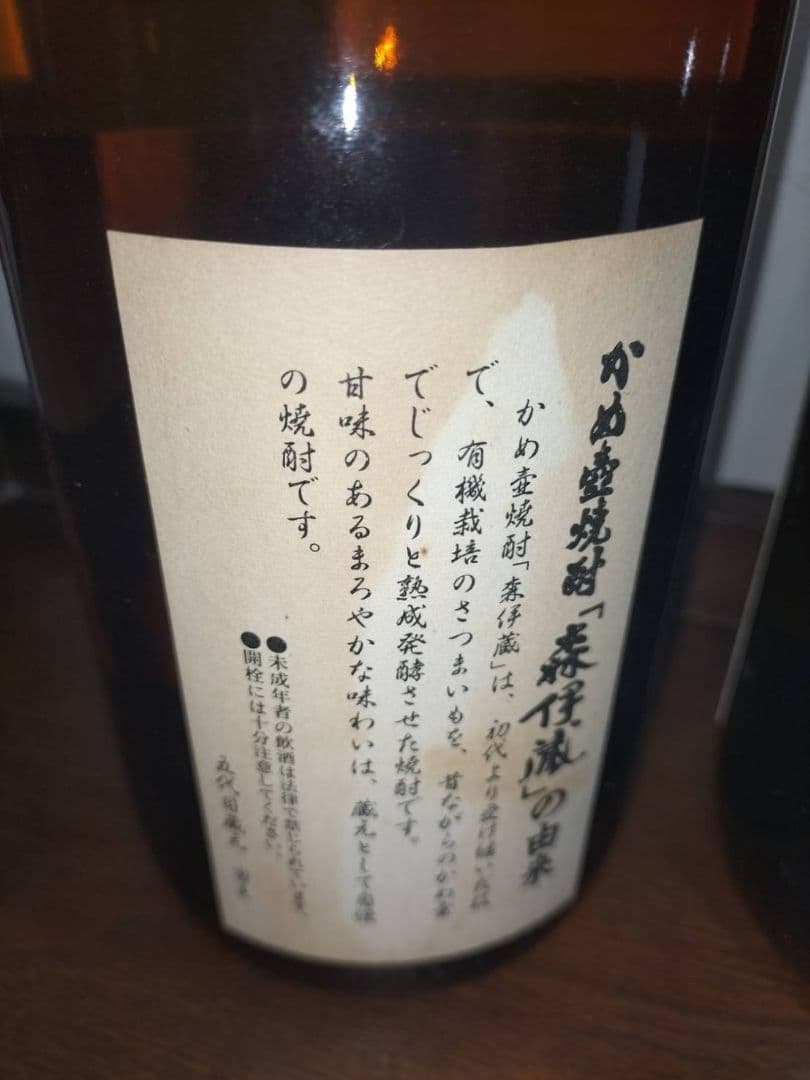 かめ壺焼酎「森伊蔵」の由来
かめ壺焼酎「森伊蔵」は、初代より受け継いだ技
で、有機栽培のさつまいもを、昔ながらのかめ壺
でじっくりと熟成発酵させた焼酎です。
甘味のあるまろやかな味わいは、蔵元として自慢
の焼酎です。
●未成年者の飲酒は法律で禁じられています。
●開栓には十分注意してください。
五代目蔵元